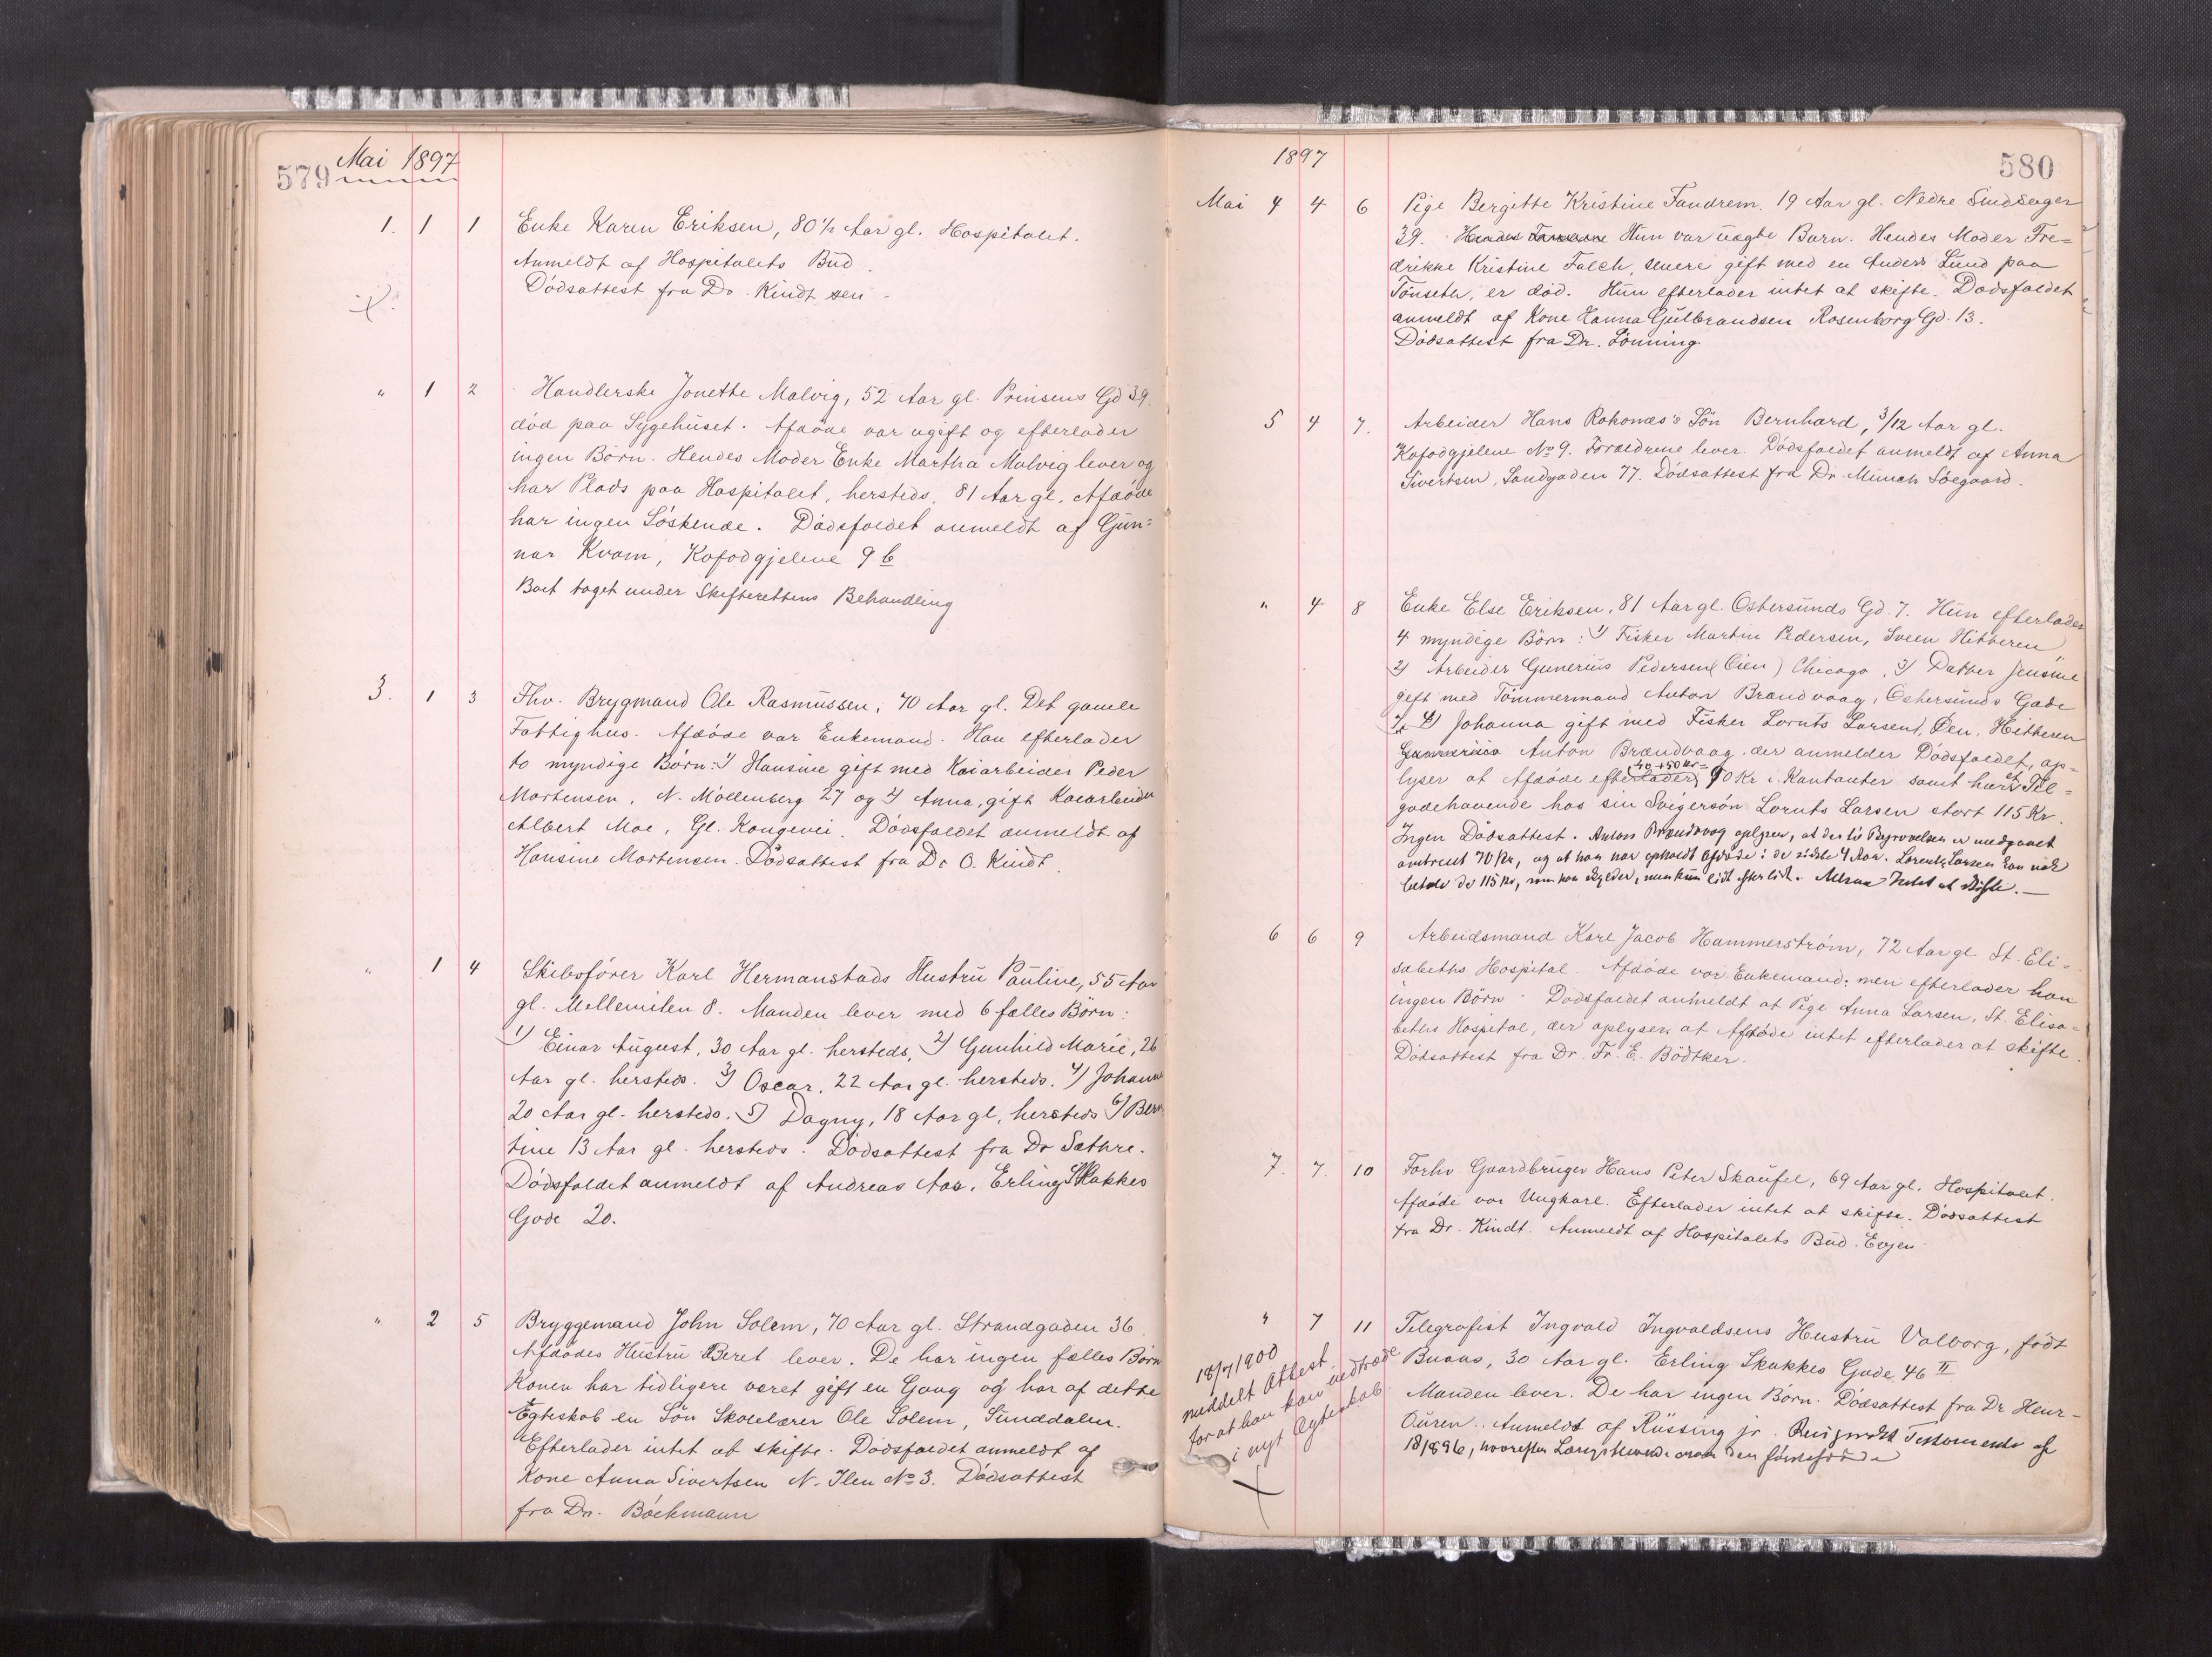 579 Mai 1897
1. 1 1 Enke Karen Eriksen, 80 1/2 Aar gl. Hospitalet.
Anmeldt af Hospitalets Bud.
Dödsattest fra Dr. Kindt sen
" 1 2 Handlerske Jonette Malvig, 52 Aar gl. Prinsens Gd 39.
död paa Sygehuset. Afdöde var ugift og efterlader
ingen Börn. Hendes Moder Enke Martha Malvig lever og
har Plads paa Hospitalet, hersteds, 81 Aar gl. Afdöde
har ingen Söskende. Dödsfaldet anmeldt af Gun=
nar Kvam, Kofodgjelene 9 b
Boet taget under Skifterettens Behandling
3. 1 3 Fhv. Brygmand Ole Rasmussen, 70 Aar gl. Det gamle
Fattighus. Afdöde var Enkemand. Han efterlader
to myndige Börn: 1) Hansine gift med Kaiarbeider Peder
Mortensen, N. Möllenberg 27 og 2) Anna, gift Kaiarbeider
Albert Moe, Gl. Kongevei. Dödsfaldet anmeldt af
Hansine Mortensen. Dödsattest fra Dr O. Kindt.
" 1 4 Skibsförer Karl Hermanstads Hustru Pauline, 55 Aar
gl. Mellemilen 8. Manden lever med 6 fælles Börn:
1) Einar August, 30 Aar gl. hersteds, 2) Gunhild Marie, 26
Aar gl. hersteds. 3) Oscar, 22 Aar gl. hersteds. 4) Johanne
20 Aar gl. hersteds. 5) Dagny, 18 Aar gl, hersteds 6) Bern
tine 13 Aar gl. hersteds. Dödsattest fra Dr Sæthre.
Dödsfaldet anmeldt af Andreas Aas, Erling Skakkes
Gade 20.
" 2 5 Bryggemand John Solem, 70 Aar gl. Strandgaden 36
Afdödes Hustru Beret lever. De har ingen fælles Börn
Konen har tidligere været gift en Gang og har af dette
Egteskab en Sön Skolelærer Ole Solem, Sunddalen.
Efterlader intet at skifte. Dödsfaldet anmeldt af
Kone Anna Sivertsen N. Ilen No 3. Dödsattest
fra Dr. Böckmann
1897 580
Mai 4 4 6 Pige Bergitte Kristine Fandrem. 19 Aar gl. Nedre Sindsager
39. Hun var uægte Barn. Hendes Moder Fre=
drikke Kristine Falch, senere gift med en Anders Lund paa
Tönseth, er död. Hun efterlader intet at skifte. Dödsfaldet
anmeldt af Kone Hanna Gulbrandsen Rosenborg Gd. 13.
Dödsattest fra Dr. Lönning
5 4 7. Arbeider Hans Rokonæs's Sön Bernhard, 3/12 Aar gl.
Kofodgjelene No 9. Forældrene lever. Dödsfaldet anmeldt af Anna
Sivertsen, Sandgaden 77. Dödsattest fra Dr. Munch Söegaard.
" 4 8 Enke Else Eriksen, 81 Aar gl. Ostersunds Gd. 7. Hun efterlader
4 myndige Börn: 1) Fisker Martin Pedersen, Sveen Hitteren
2) Arbeider Gunerius Pedersen (Öien) Chicago, 3) Datter Jensine
gift med Tömmermand Anton Brandvaag, Ostersunds Gade
7, 4) Johanna gift med Fisker Lornts Larsen, Öen, Hitteren
Anton Brandvaag, der anmelder Dödsfaldet, op=
lyser at Afdöde efterlader 40 + 50 Kr = 90 Kr i Kontanter samt har et Til=
godehavende hos sin Svigersön Lornts Larsen stort 115 Kr.
Ingen Dödsattest. Anton Brandvaag oplyser, at der til Begravelsen er medgaaet
omtrent 70 Kr, og at han har opholdt Afdöde i de sidste 4 Aar. Lorents Larsen kan nok
betale de 115 Kr, som han skylder, men kun lidt efter lidt. Altsaa Intet at skifte.—
6 6 9 Arbeidsmand Karl Jacob Hammerström, 72 Aar gl. St. Eli=
sabeths Hospital. Afdöde var Enkemand; men efterlader han
ingen Börn. Dödsfaldet anmeldt af Pige Anna Larsen, St. Elisa=
beths Hospital, der oplyser at Afdöde intet efterlader at skifte.
Dödsattest fra Dr. Fr. E. Bödtker.
7. 7. 10 Forhv. Gaardbruger Hans Peter Skaufel, 69 Aar gl. Hospitalet.
Afdöde var Ungkarl. Efterlader intet at skifte. Dödsattest
fra Dr. Kindt. Anmeldt af Hospitalets Bud. Evjen
" 7 11 Telegrafist Ingvald Ingvaldsens Hustru Valborg, födt
Buaas, 30 Aar gl. Erling Skakkes Gade 46 II
Manden lever. De har ingen Börn. Dödsattest fra Dr Henr-
Ouren. Anmeldt af Rüssing jr. Testamente af
18/8 96, hvorefter Længstlevende den förstafdöde
18/7 1900
meddelt Attest
for at han kan indtræde
i nyt Ægteskab